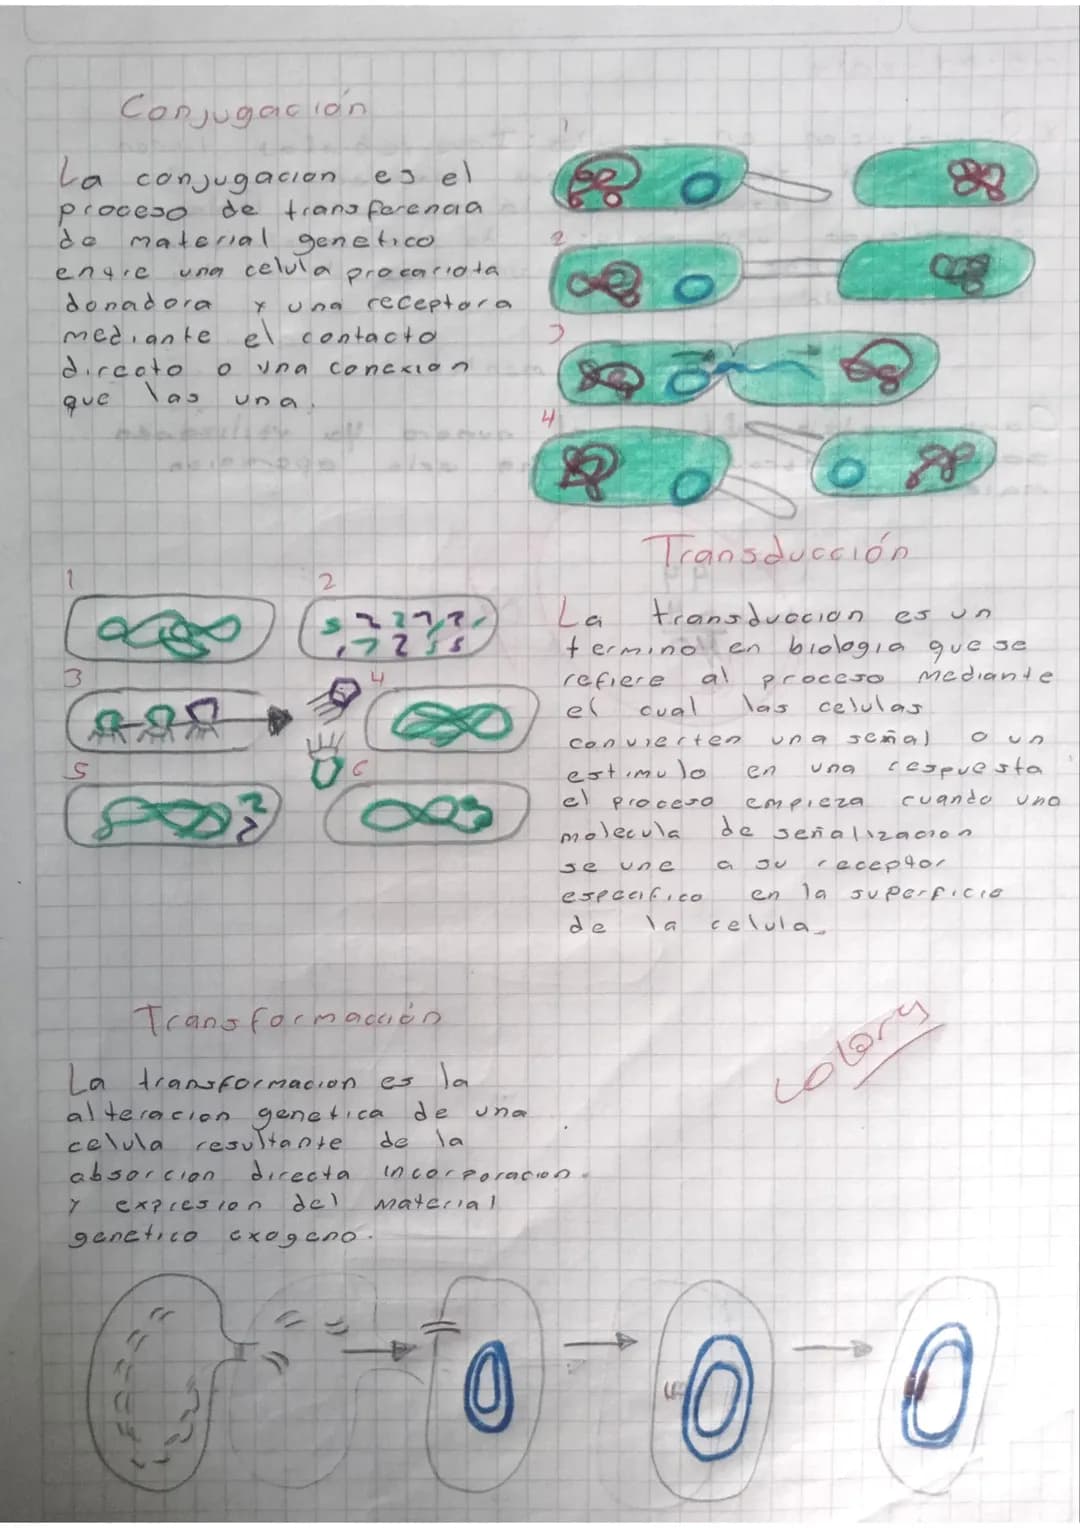 Conjugación
La conjugacion es el
proceso de transferencia
de material genetico
entre una celula procariota
donadora y una receptora
mediante el contacto
directo o una conexion
que las una.
1
2
3
4
Transducción
1
2
3
4
5
6
La transduccion es un
termino en biologia que se
refiere al proceso mediante
el cual las celulas
convierten una señal o un
estimulo en una respuesta
el proceso empieza cuando una
molecula de señalizacion
se une a su receptor
especifico en la superficie
de la celula.
Transformación
La transformacion es la
alteracion genetica de una
celula resultante de la
absorcion directa incorporacion
y expresion del material
genetico exogeno.